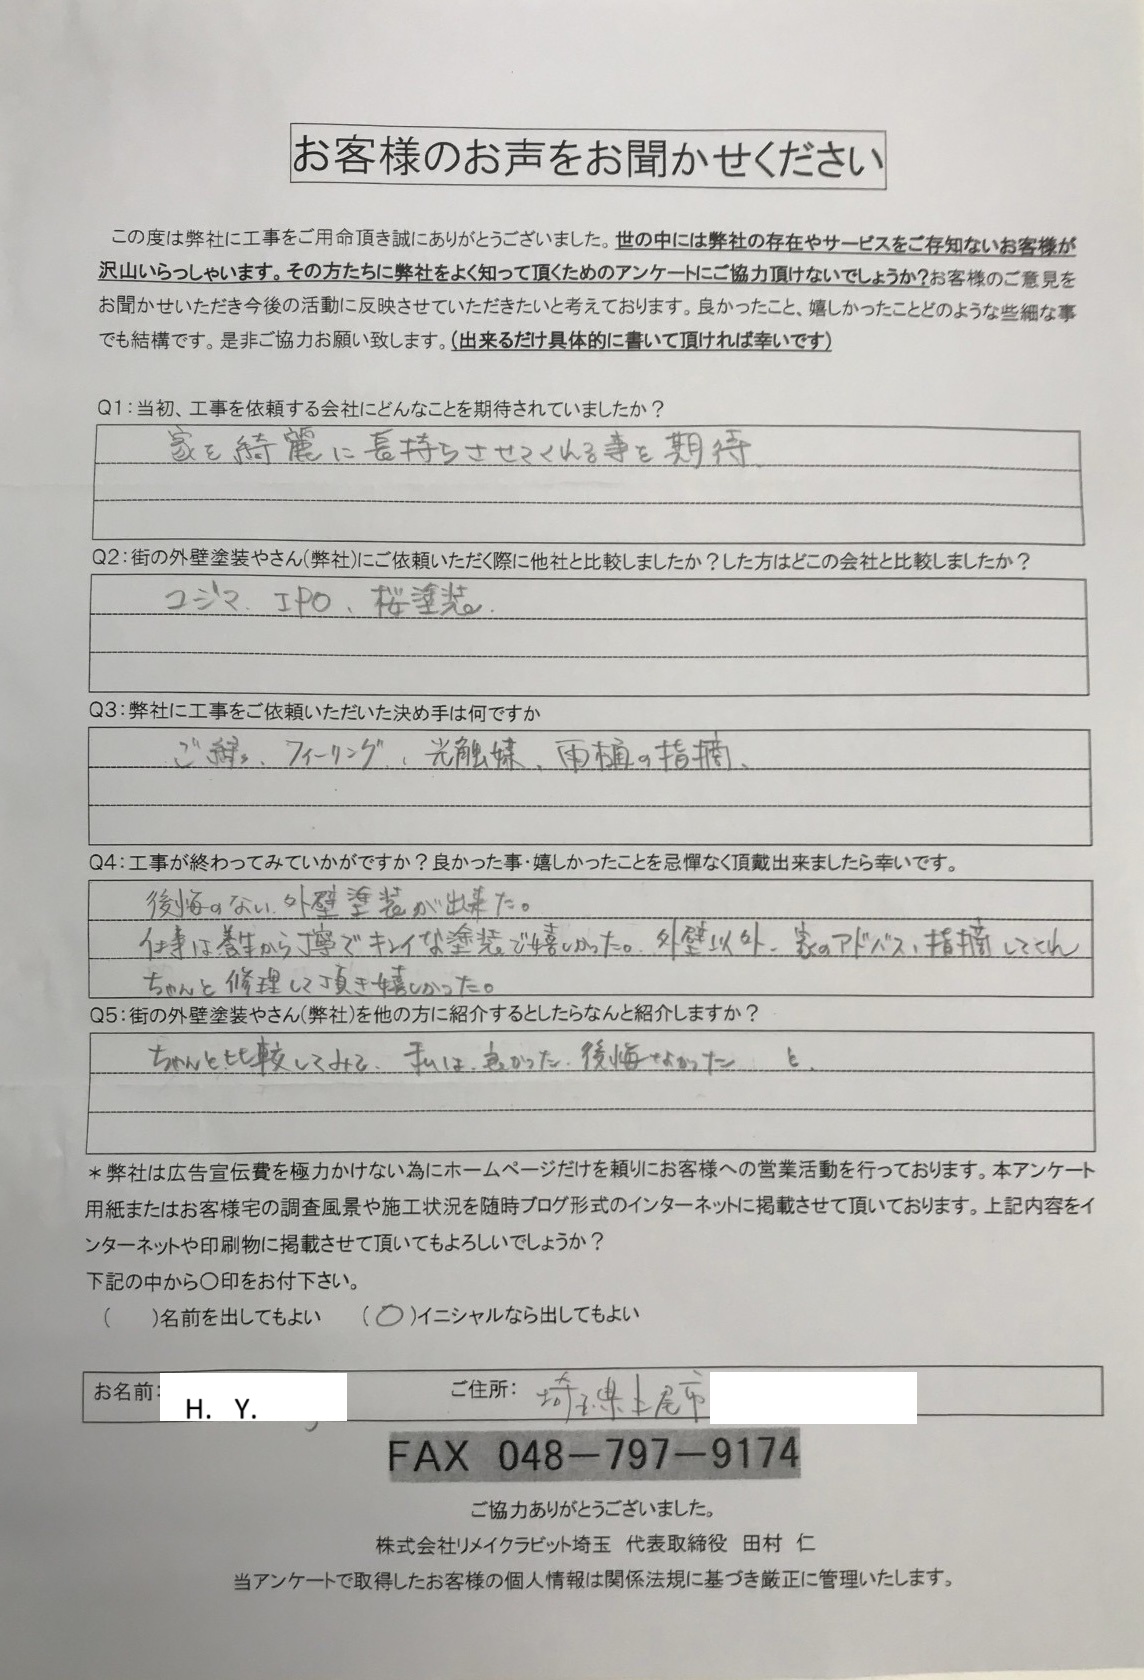 お客様のお声をお聞かせください
この度は弊社に工事をご用命頂き誠にありがとうございました。世の中には弊社の存在やサービスをご存知ないお客様が
沢山いらっしゃいます。その方たちに弊社をよく知って頂くためのアンケートにご協力頂けないでしょうか?お客様のご意見を
お聞かせいただき今後の活動に反映させていただきたいと考えております。良かったこと、嬉しかったことどのような些細な事
でも結構です。是非ご協力お願い致します。(出来るだけ具体的に書いて頂ければ幸いです)
Q1:当初、工事を依頼する会社にどんなことを期待されていましたか?
家を綺麗に長持ちさせてくれる事を期待
Q2:街の外壁塗装やさん(弊社)にご依頼いただく際に他社と比較しましたか?した方はどこの会社と比較しましたか?
コジマ、IPO、桜塗装。
Q3:弊社に工事をご依頼いただいた決め手は何ですか
ご縁、フィーリング、光触媒、雨樋の指摘、
Q4:工事が終わってみていかがですか?良かった事・嬉しかったことを忌憚なく頂戴出来ましたら幸いです。
後悔のない外壁塗装が出来た。
仕事は養生から丁寧でキレイな塗装で嬉しかった。外壁以外、家のアドバス、指摘してくれ
ちゃんと修理して頂き嬉しかった。
Q5:街の外壁塗装やさん(弊社)を他の方に紹介するとしたらなんと紹介しますか?
ちゃんと比較してみて、私は、良かった、後悔なかった と、
*弊社は広告宣伝費を極力かけない為にホームページだけを頼りにお客様への営業活動を行っております。本アンケート
用紙またはお客様宅の調査風景や施工状況を随時ブログ形式のインターネットに掲載させて頂いております。上記内容をイ
ンターネットや印刷物に掲載させて頂いてもよろしいでしょうか?
下記の中から〇印をお付下さい。
( )名前を出してもよい (〇)イニシャルなら出してもよい
お名前: H. Y. ご住所: 埼玉県上尾市
FAX 048-797-9174
ご協力ありがとうございました。
株式会社リメイクラビット埼玉 代表取締役 田村 仁
当アンケートで取得したお客様の個人情報は関係法規に基づき厳正に管理いたします。